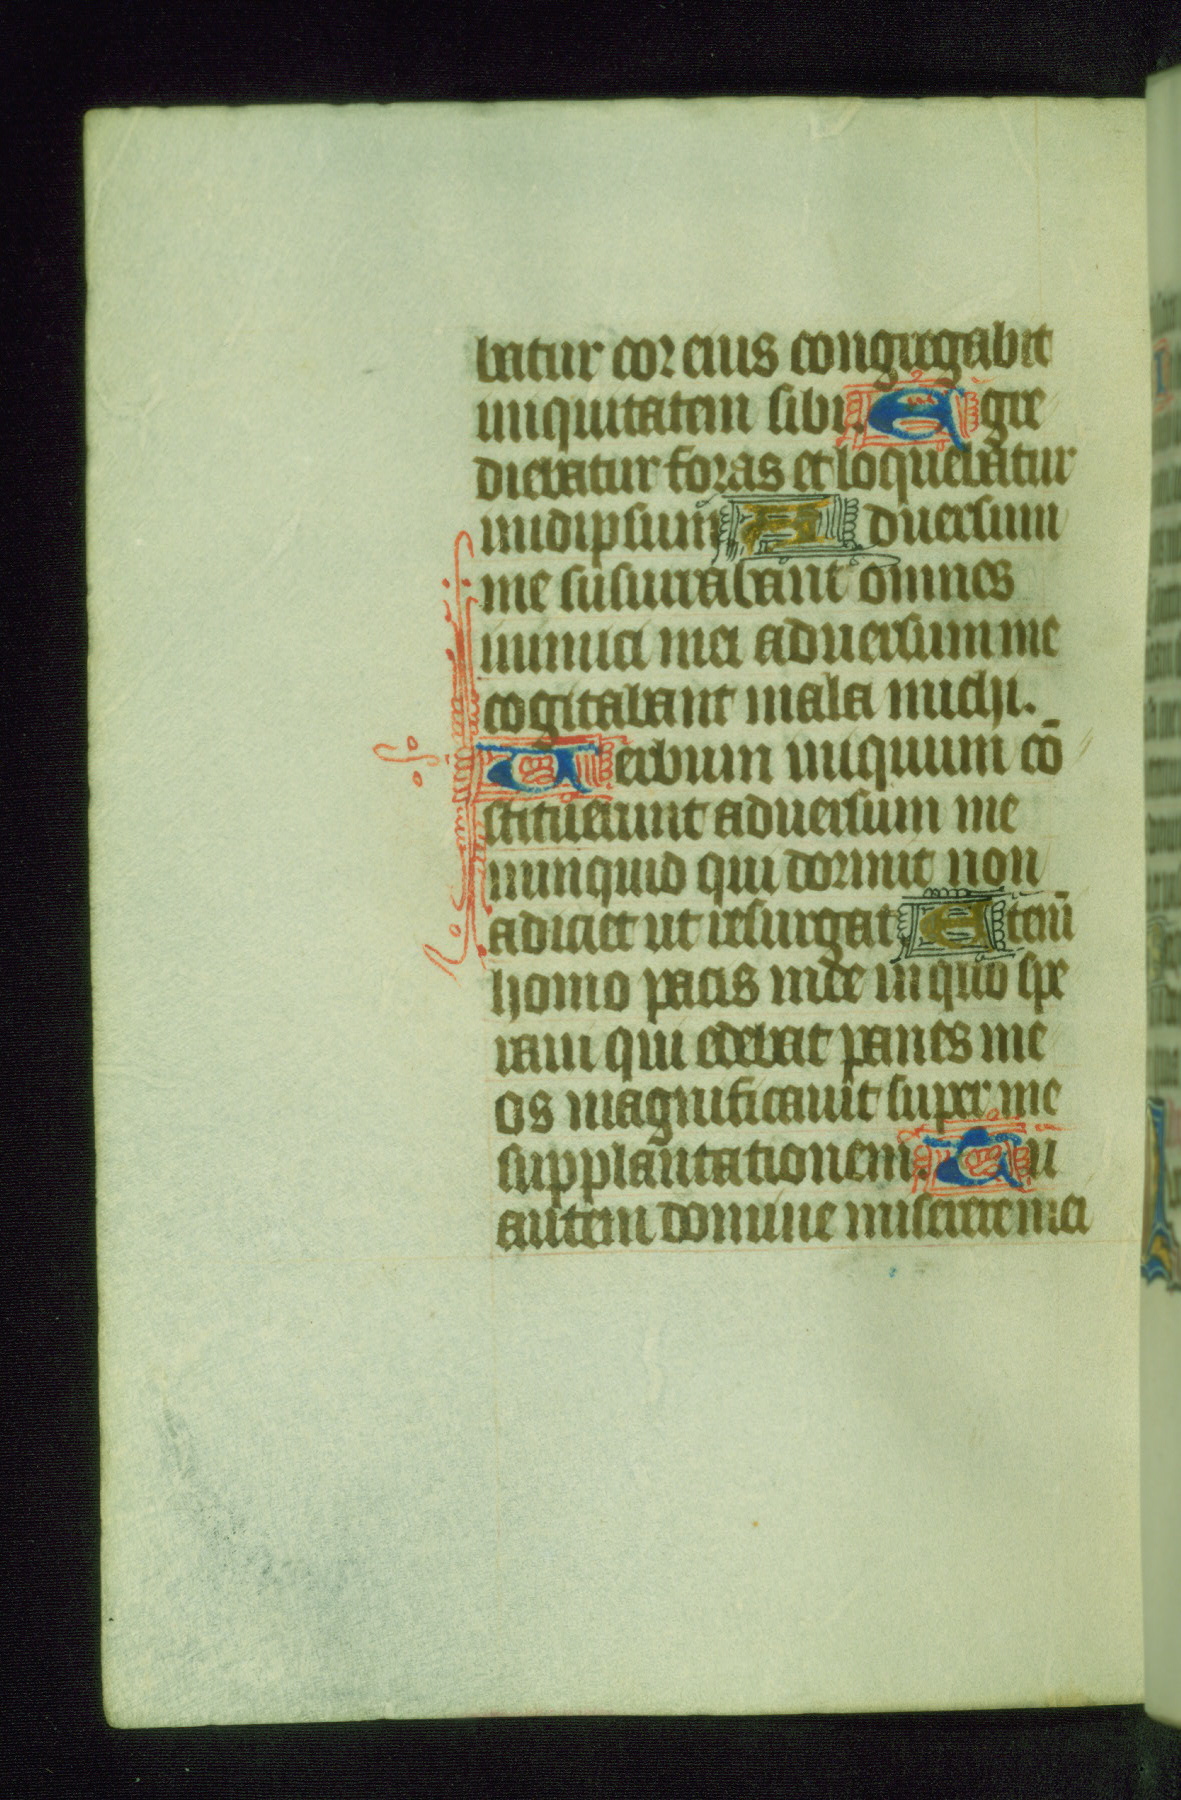 batur cor eius congregabit
iniquitatem sibi. Egre
diebatur foras et loquebatur
in idipsum Aduersum
me susurrabant omnes
inimici mei aduersum me
cogitabant mala michi.
Uerbum iniquum cō
stituerunt aduersum me
nunquid qui dormit non
adiciet ut resurgat Eteni̅
homo pacis mee in quo spe
raui qui edebat panes me
os magnificauit super me
supplantationem. Tu
autem domine miserere mei